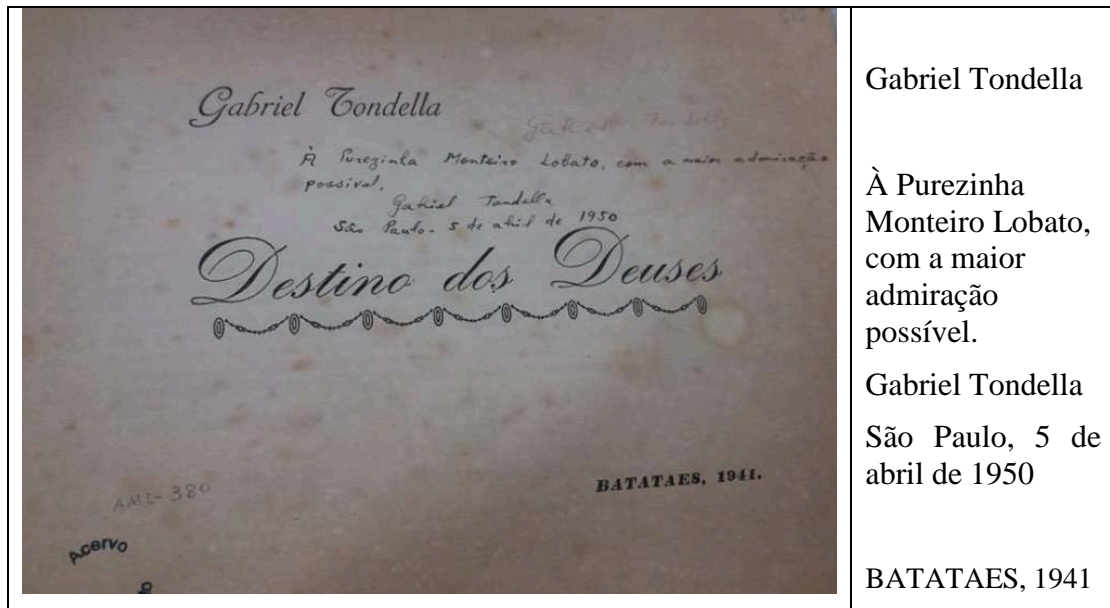 Gabriel Tondella
Gabriel Tondella
À Purezinha Monteiro Lobato, com a maior admiração
possivel,
Gabriel Tondella
São Paulo - 5 de abril de 1950
Destino dos Deuses
BATATAES, 1941.
AML-380
Acervo
Gabriel Tondella
À Purezinha
Monteiro Lobato,
com a maior
admiração
possível.
Gabriel Tondella
São Paulo, 5 de
abril de 1950
BATATAES, 1941